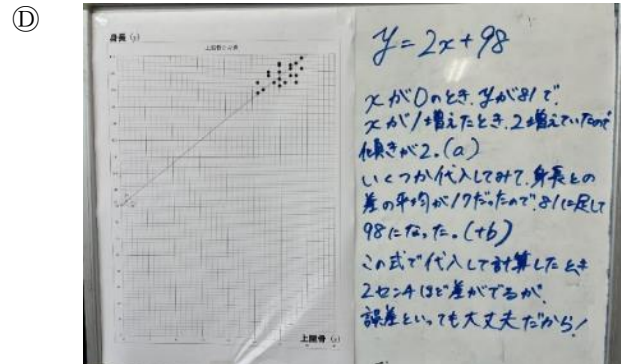 Ⓓ
身長 (y)
y=2x+98
xが0のとき、yが81で、
xが1増えたとき、2増えていたので
傾きが2。(a)
いくつか代入してみて、身長との
差の平均が17だったので、81に足して
98になった。(+b)
この式で代入して計算したとき
2センチほど差がでるが、
誤差といっても大丈夫だから!
上腕骨 (x)